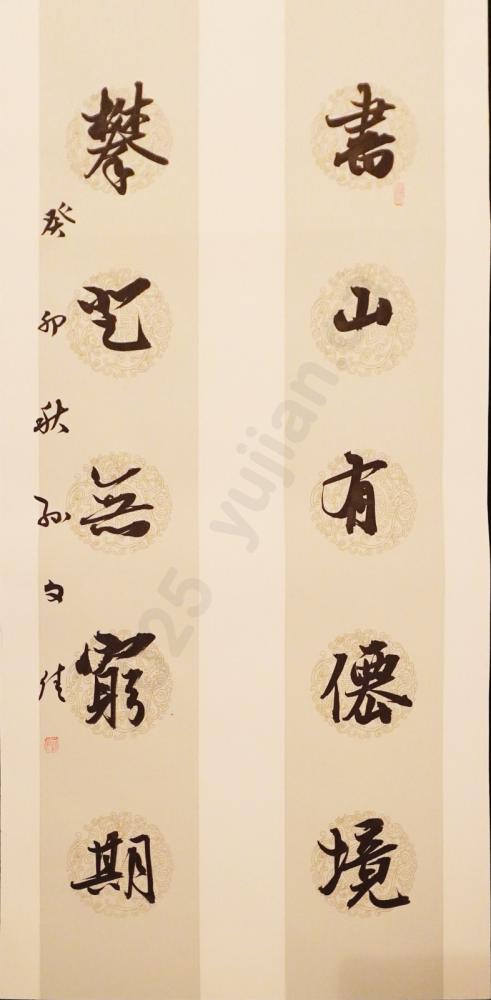 書山有僊境
攀登無窮期
癸卯秋孫文佳
25 yujian.